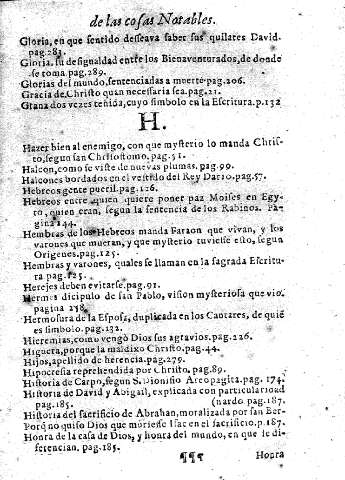 de las cosas Notables.
Gloria, en que sentido desseava saber sus quilates David.
pag.283.
Gloria, su desigualdad entre los Bienaventurados, de donde
se toma.pag.289.
Glorias del mundo, sentenciadas a muerte.pag.206.
Gracia de Christo quan necessaria sea.pag.21.
Grana dos vezes teñida, cuyo simbolo en la Escritura.p.132
H.
Hazer bien al enemigo, con que mysterio lo manda Chris-
to, segun san Chrisostomo.pag.51.
Halcon, como se viste de nuevas plumas.pag.99.
Halcones bordados en el vestido del Rey Dario.pag.57.
Hebreos gente pueril.pag.126.
Hebreos entre quien quiere poner paz Moises en Egy-
to, quien eran, segun la sentencia de los Rabinos. Pa-
gina 144.
Hembras de los Hebreos manda Faraon que vivan, y los
varones que mueran, y que mysterio tuviesse esto, segun
Origenes.pag.125.
Hembras y varones, quales se llaman en la sagrada Escritu-
ra pag.125.
Herejes deben evitarse.pag.91.
Hermes dicipulo de san Pablo, vision mysteriosa que vio.
pagina 158.
Hermosura de la Esposa, duplicada en los Cantares, de quiē
es simbolo.pag.132.
Hieremias, como vengò Dios sus agravios.pag.226.
Higuera, porque la maldixo Christo.pag.44.
Hijos, apellido de herencia.pag.279.
Hipocresia reprehendida por Christo.pag.89.
Historia de Carpo, segun S. Dionisio Areopagita.pag. 174.
Historia de David y Abigail, explicada con particularidad
pag.185. (nardo pag.187.
Historia del sacrificio de Abrahan, moralizada por san Ber-
Porq̃ no quiso Dios que muriesse Isac en el sacrificio.p.187.
Honra de la casa de Dios, y honra del mundo, en que se di-
ferencian.pag.185.
¶¶¶ Honra